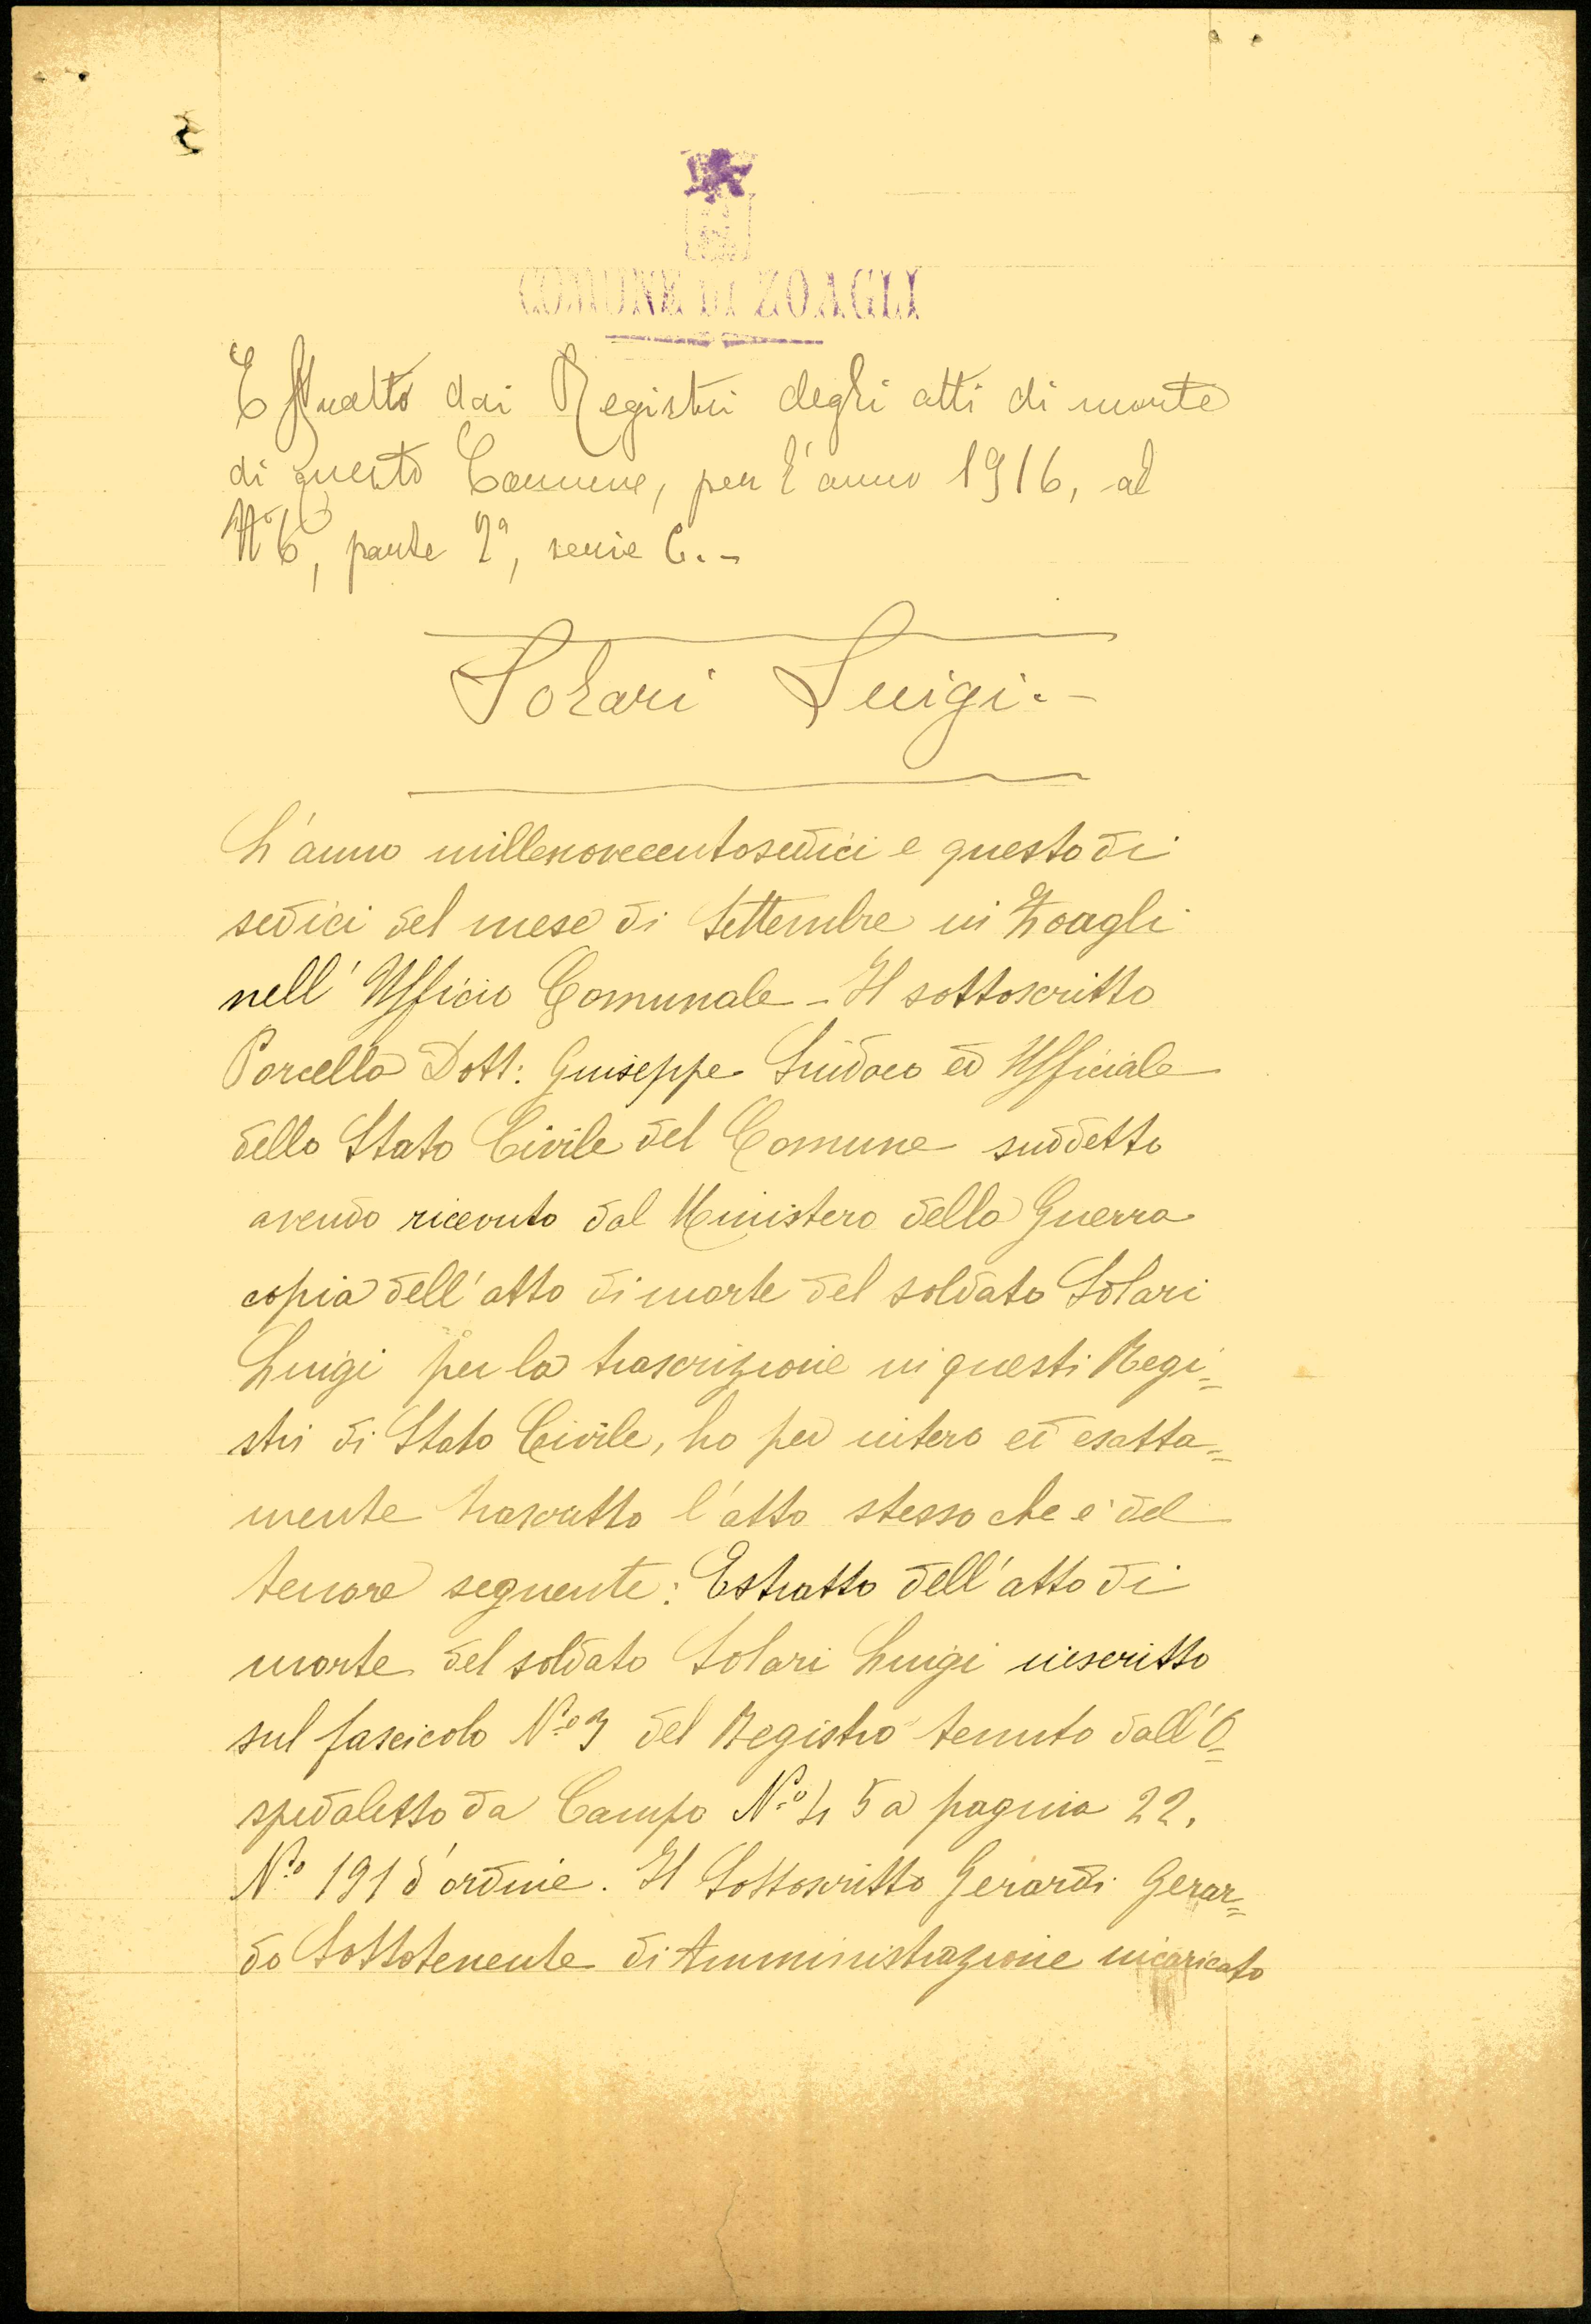 COMUNE DI ZOAGLI
Estratto dai Registri degli atti di morte
di questo Comune, per l'anno 1916, al
N° 6, parte 2ª, serie C. -
Solari Luigi. -
L'anno millenovecentosedici e questo dì
sedici del mese di Settembre in Zoagli
nell'Ufficio Comunale - Il sottoscritto
Porcella Dott: Giuseppe Sindaco ed Ufficiale
dello Stato Civile del Comune suddetto
avendo ricevuto dal Ministero della Guerra
copia dell'atto di morte del soldato Solari
Luigi per la trascrizione in questi Regi=
stri di Stato Civile, ho per intero ed esatta=
mente trascritto l'atto stesso che è del
tenore seguente: Estratto dell'atto di
morte del soldato Solari Luigi inscritto
sul fascicolo N.º 3 del Registro tenuto dall'O=
spedaletto da Campo N.º 45 a pagina 22.
N.º 191 d'ordine. Il Sottoscritto Gerardi Gerar=
do Sottotenente di Amministrazione incaricato